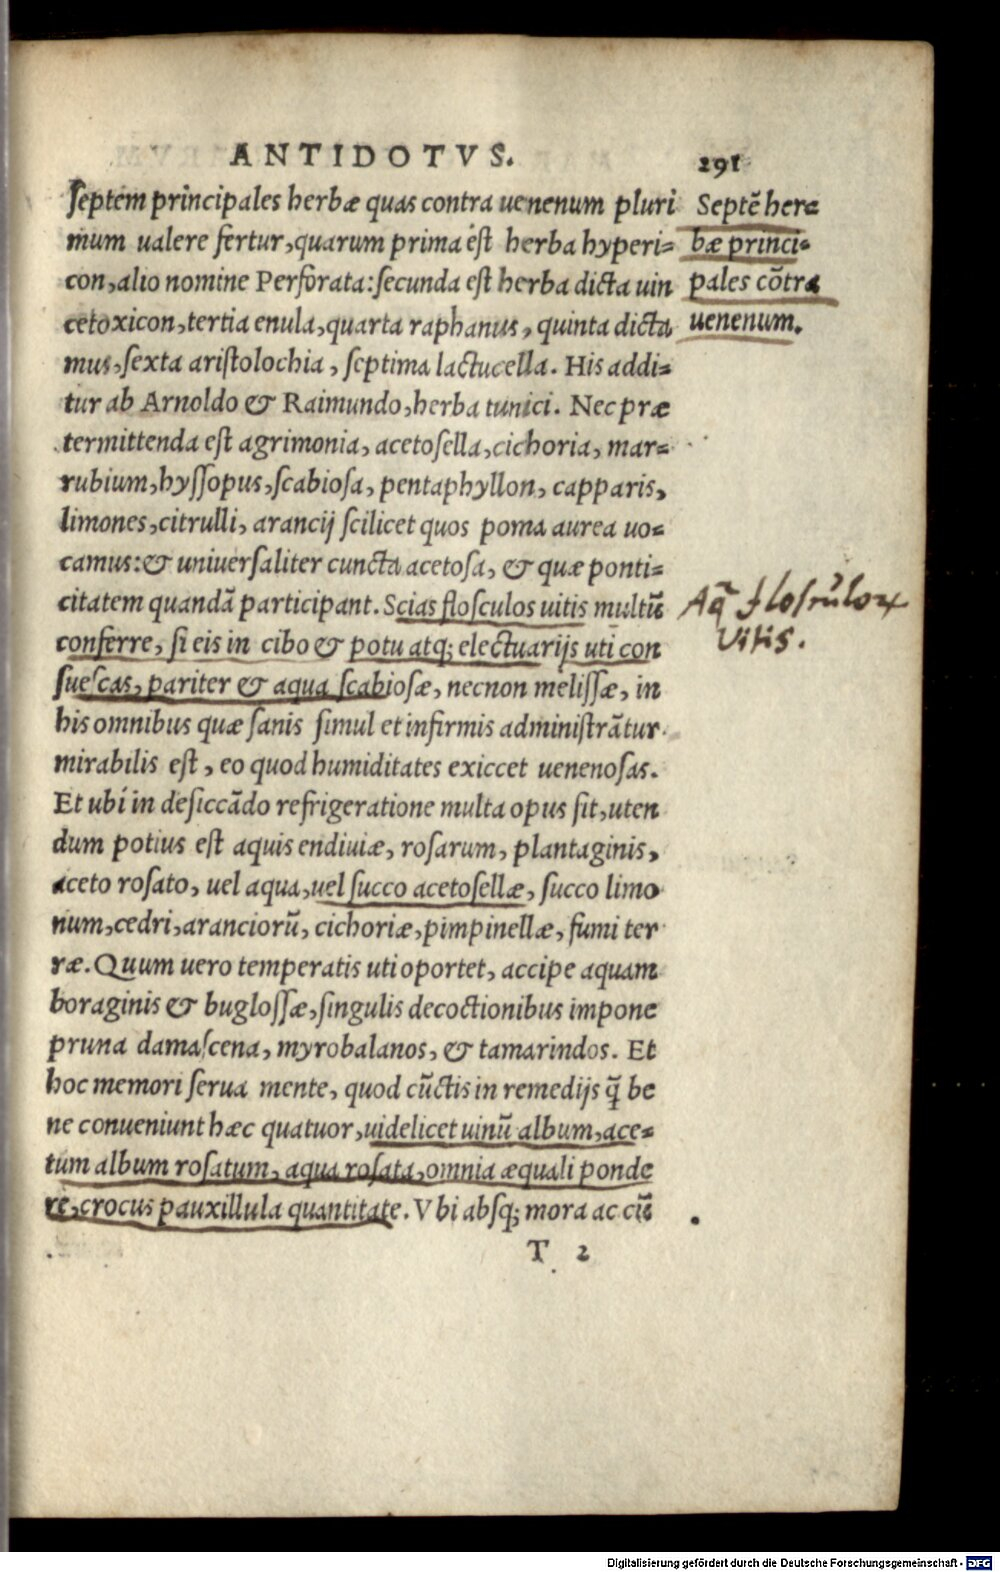 ANTIDOTVS. 291
septem principales herbæ quas contra uenenum pluri
mum ualere fertur, quarum prima est herba hyperi=
con, alio nomine Perforata: secunda est herba dicta uin
cetoxicon, tertia enula, quarta raphanus, quinta dicta
mus, sexta aristolochia, septima lactucella. His addi=
tur ab Arnoldo & Raimundo, herba tunici. Nec præ
termittenda est agrimonia, acetosella, cichoria, mar=
rubium, hyssopus, scabiosa, pentaphyllon, capparis,
limones, citrulli, arancij scilicet quos poma aurea uo=
camus: & uniuersaliter cuncta acetosa, & quæ ponti=
citatem quandã participant. Scias flosculos uitis multũ
conferre, si eis in cibo & potu atq; electuarijs uti con
suescas, pariter & aqua scabiosæ, necnon melissæ, in
his omnibus quæ sanis simul et infirmis administrãtur
mirabilis est, eo quod humiditates exiccet uenenosas.
Et ubi in desiccãdo refrigeratione multa opus sit, uten
dum potius est aquis endiuiæ, rosarum, plantaginis,
aceto rosato, uel aqua, uel succo acetosellæ, succo limo
num, cedri, aranciorũ, cichoriæ, pimpinellæ, fumi ter
ræ. Quum uero temperatis uti oportet, accipe aquam
boraginis & buglossæ, singulis decoctionibus impone
pruna damascena, myrobalanos, & tamarindos. Et
hoc memori serua mente, quod cũctis in remedijs q̃ be
ne conueniunt hæc quatuor, uidelicet uinũ album, ace=
tum album rosatum, aqua rosata, omnia æquali ponde
re, crocus pauxillula quantitate. Vbi absq; mora ac cũ
T 2
Septẽ her=
bæ princi=
pales cõtra
uenenum.
Aq̃ flosculoꝝ
Vitis.
Digitalisierung gefördert durch die Deutsche Forschungsgemeinschaft - DFG